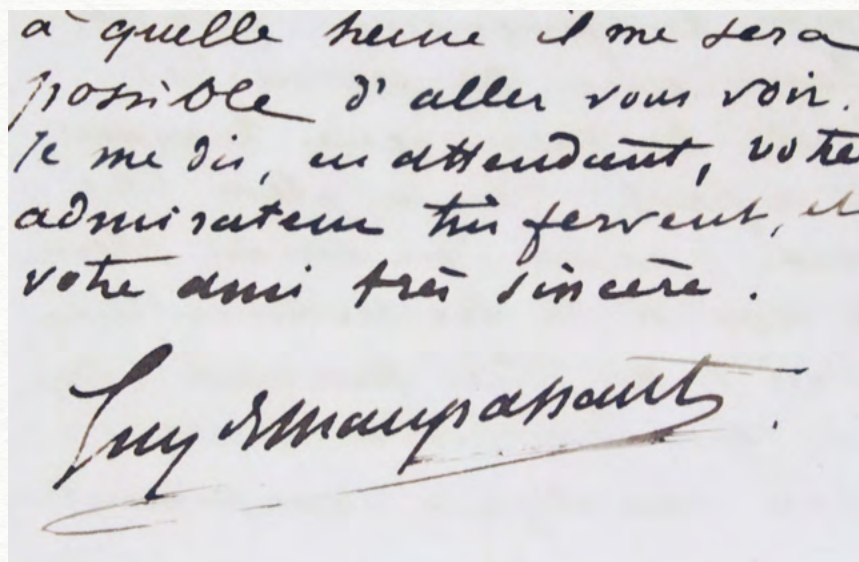 à quelle heure il me sera
possible d'aller vous voir.
Je me dis, en attendant, votre
admirateur très fervent, et
votre ami très sincère.
Guy de Maupassant.